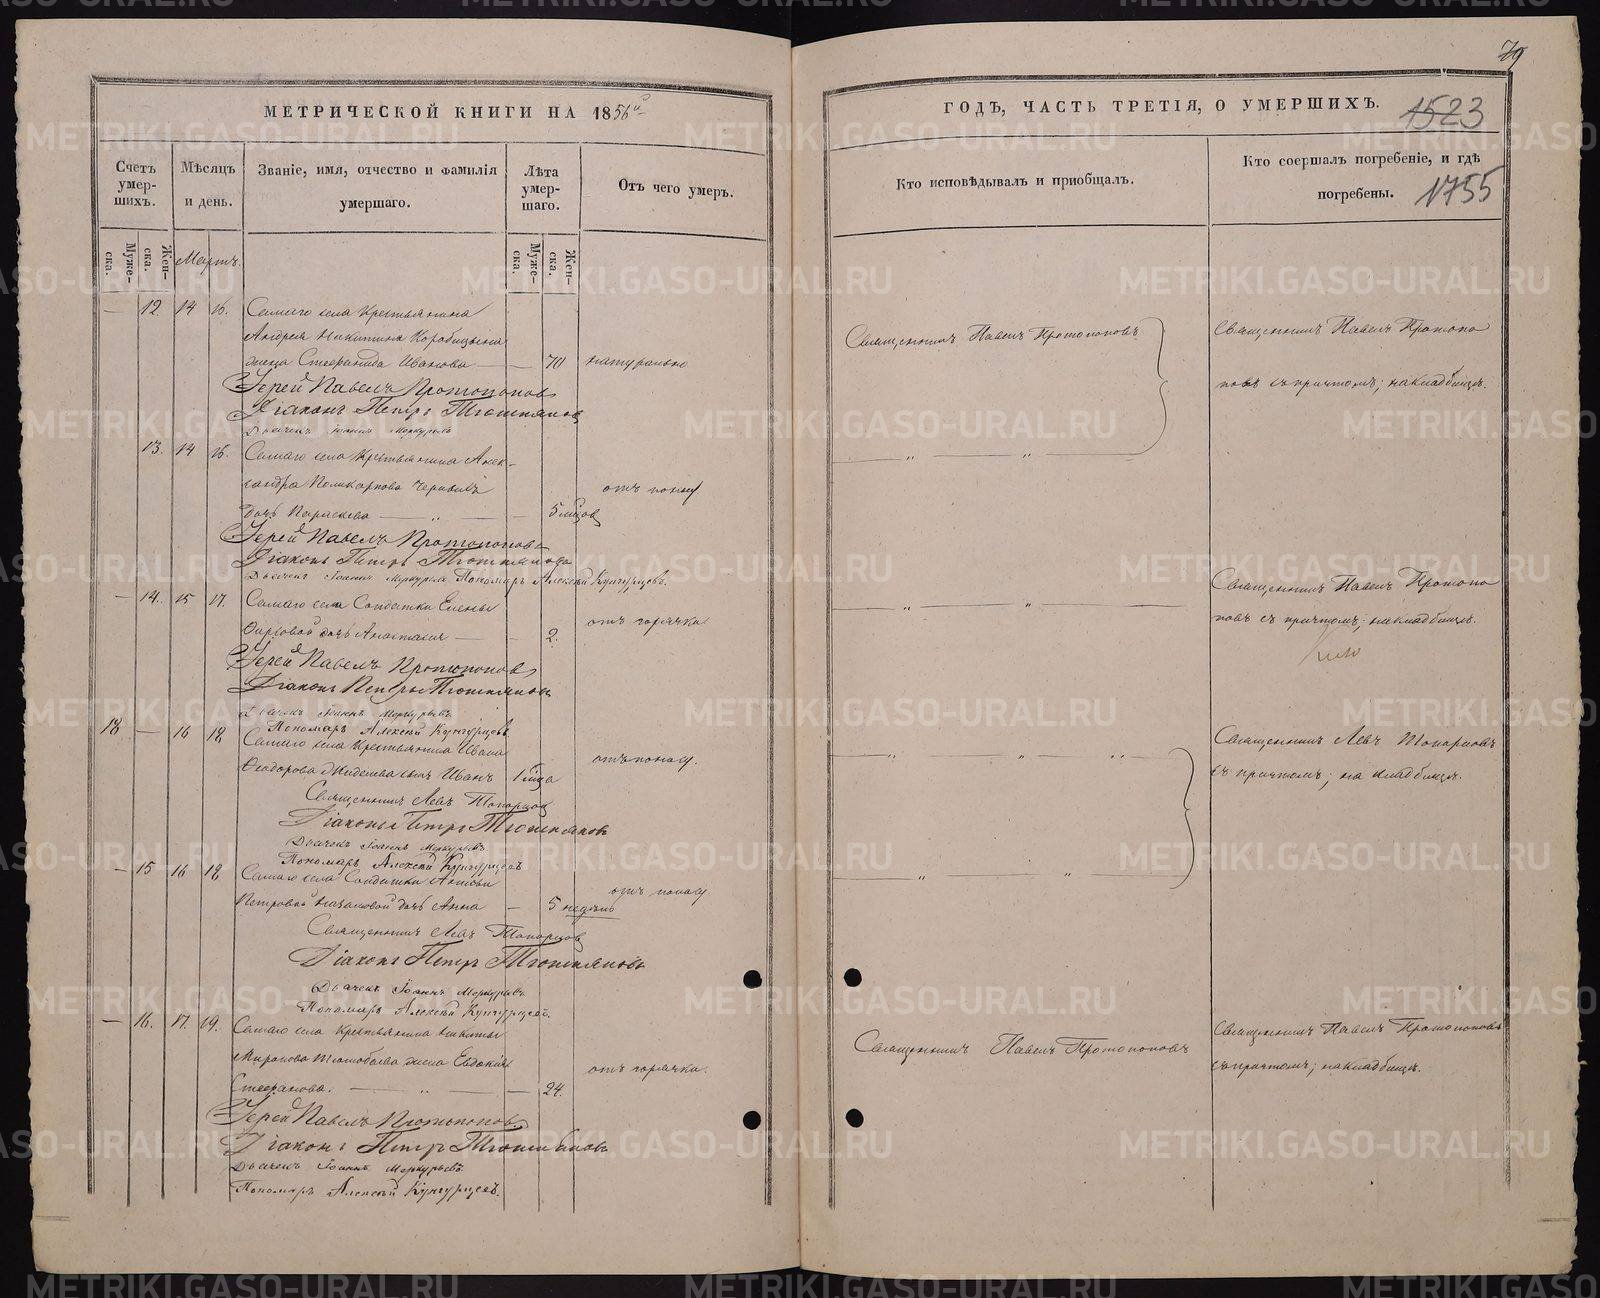 МЕТРИЧЕСКОЙ КНИГИ НА 1856й
Счетъ умер-шихъ.
Мѣсяцъ и день.
Званіе, имя, отчество и фамилія умершаго.
Лѣта умер-шаго.
Отъ чего умеръ.
Муже-ска.
Жен-ска.
Мартъ.
Муже-ска.
Жен-ска.
— 12 14 16. Самаго села Крестьянина
Андрея Никитина
жена Стефанида Иванова — — 70 натурально
Іерей Павелъ Протопоповъ
Діаконъ Петръ
Дьячекъ Іоаннъ Меркурьевъ
13. 14 16. Самаго села Крестьянина Алек-
сандра Поликарпова
дочь Параскева — „ — 5 мѣсяцовъ отъ поносу
Іерей Павелъ Протопоповъ
Діаконъ Петръ
Дьячекъ Іоаннъ Меркурьевъ Пономарь Алексѣй Кунгурцевъ.
— 14. 15 17. Самаго села Солдатки Елены
дочь Анастасія — — 2. отъ горячки
Іерей Павелъ Протопоповъ
Діаконъ Петръ
Дьячекъ Іоаннъ Меркурьевъ
Пономарь Алексѣй Кунгурцевъ
18 — 16 18 Самаго села Крестьянина Ивана
Ѳеодорова сынъ Иванъ 1 отъ поносу.
Священникъ Левъ Топорковъ
Діаконъ Петръ
Дьячекъ Іоаннъ Меркурьевъ
Пономарь Алексѣй Кунгурцевъ
— 15 16 18 Самаго села Солдатки
Петровой дочь Анна — 5 недѣль отъ поносу
Священникъ Левъ
Діаконъ Петръ
Дьячекъ Іоаннъ Меркурьевъ
Пономарь Алексѣй Кунгурцевъ.
— 16. 17. 19. Самаго села Крестьянина Никиты
Миронова жена Евдокія
Стефанова. — „ — — 24. отъ горячки.
Іерей Павелъ Протопоповъ
Діаконъ Петръ
Дьячекъ Іоаннъ Меркурьевъ
Пономарь Алексѣй Кунгурцевъ.
79
ГОДЪ, ЧАСТЬ ТРЕТІЯ, О УМЕРШИХЪ.
1523
Кто исповѣдывалъ и пріобщалъ.
Кто соершалъ погребеніе, и гдѣ погребены.
1755
Священникъ Павелъ Протопоповъ
Священникъ Павелъ Протопо
повъ съ причтомъ; на кладбищѣ.
— „ — „ —
— „ — „ —
Священникъ Павелъ Протопо
повъ съ причтомъ; на кладбищѣ.
— „ — „ — „
Священникъ Левъ
съ причтомъ; на кладбищѣ.
— „ — „
Священникъ Павелъ Протопоповъ
Священникъ Павелъ Протопоповъ
съ причтомъ; на кладбищѣ.
METRIKI.GASO-URAL.RU